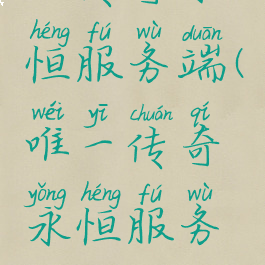 héng fú wù duān
恒服务端(
wéi yī chuán qí
唯一传奇
yǒng héng fú wù
永恒服务